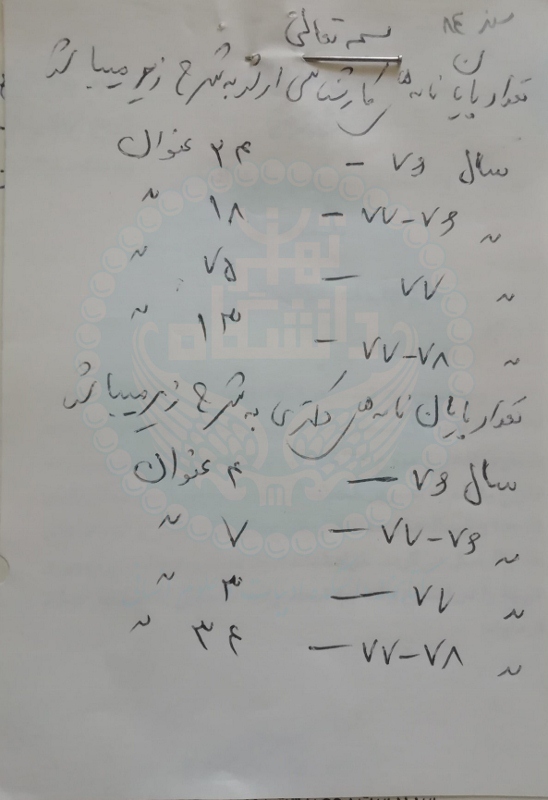 سند ۸۴
بسمه تعالی
تعداد پایان نامه های کارشناسی ارشد به شرح زیر میباشد
سال ۷۶ - ۳۴ عنوان
" ۷۶-۷۷ - ۱۸ "
" ۷۷ - ۷۵ "
" ۷۸-۷۷ - ۱۳ "
تعداد پایان نامه های دکتری به شرح زیر میباشد
سال ۷۶ - ۴ عنوان
" ۷۶-۷۷ - ۷ "
" ۷۷ - ۳ "
" ۷۸-۷۷ - ۳۴ "
دانشگاه تهران